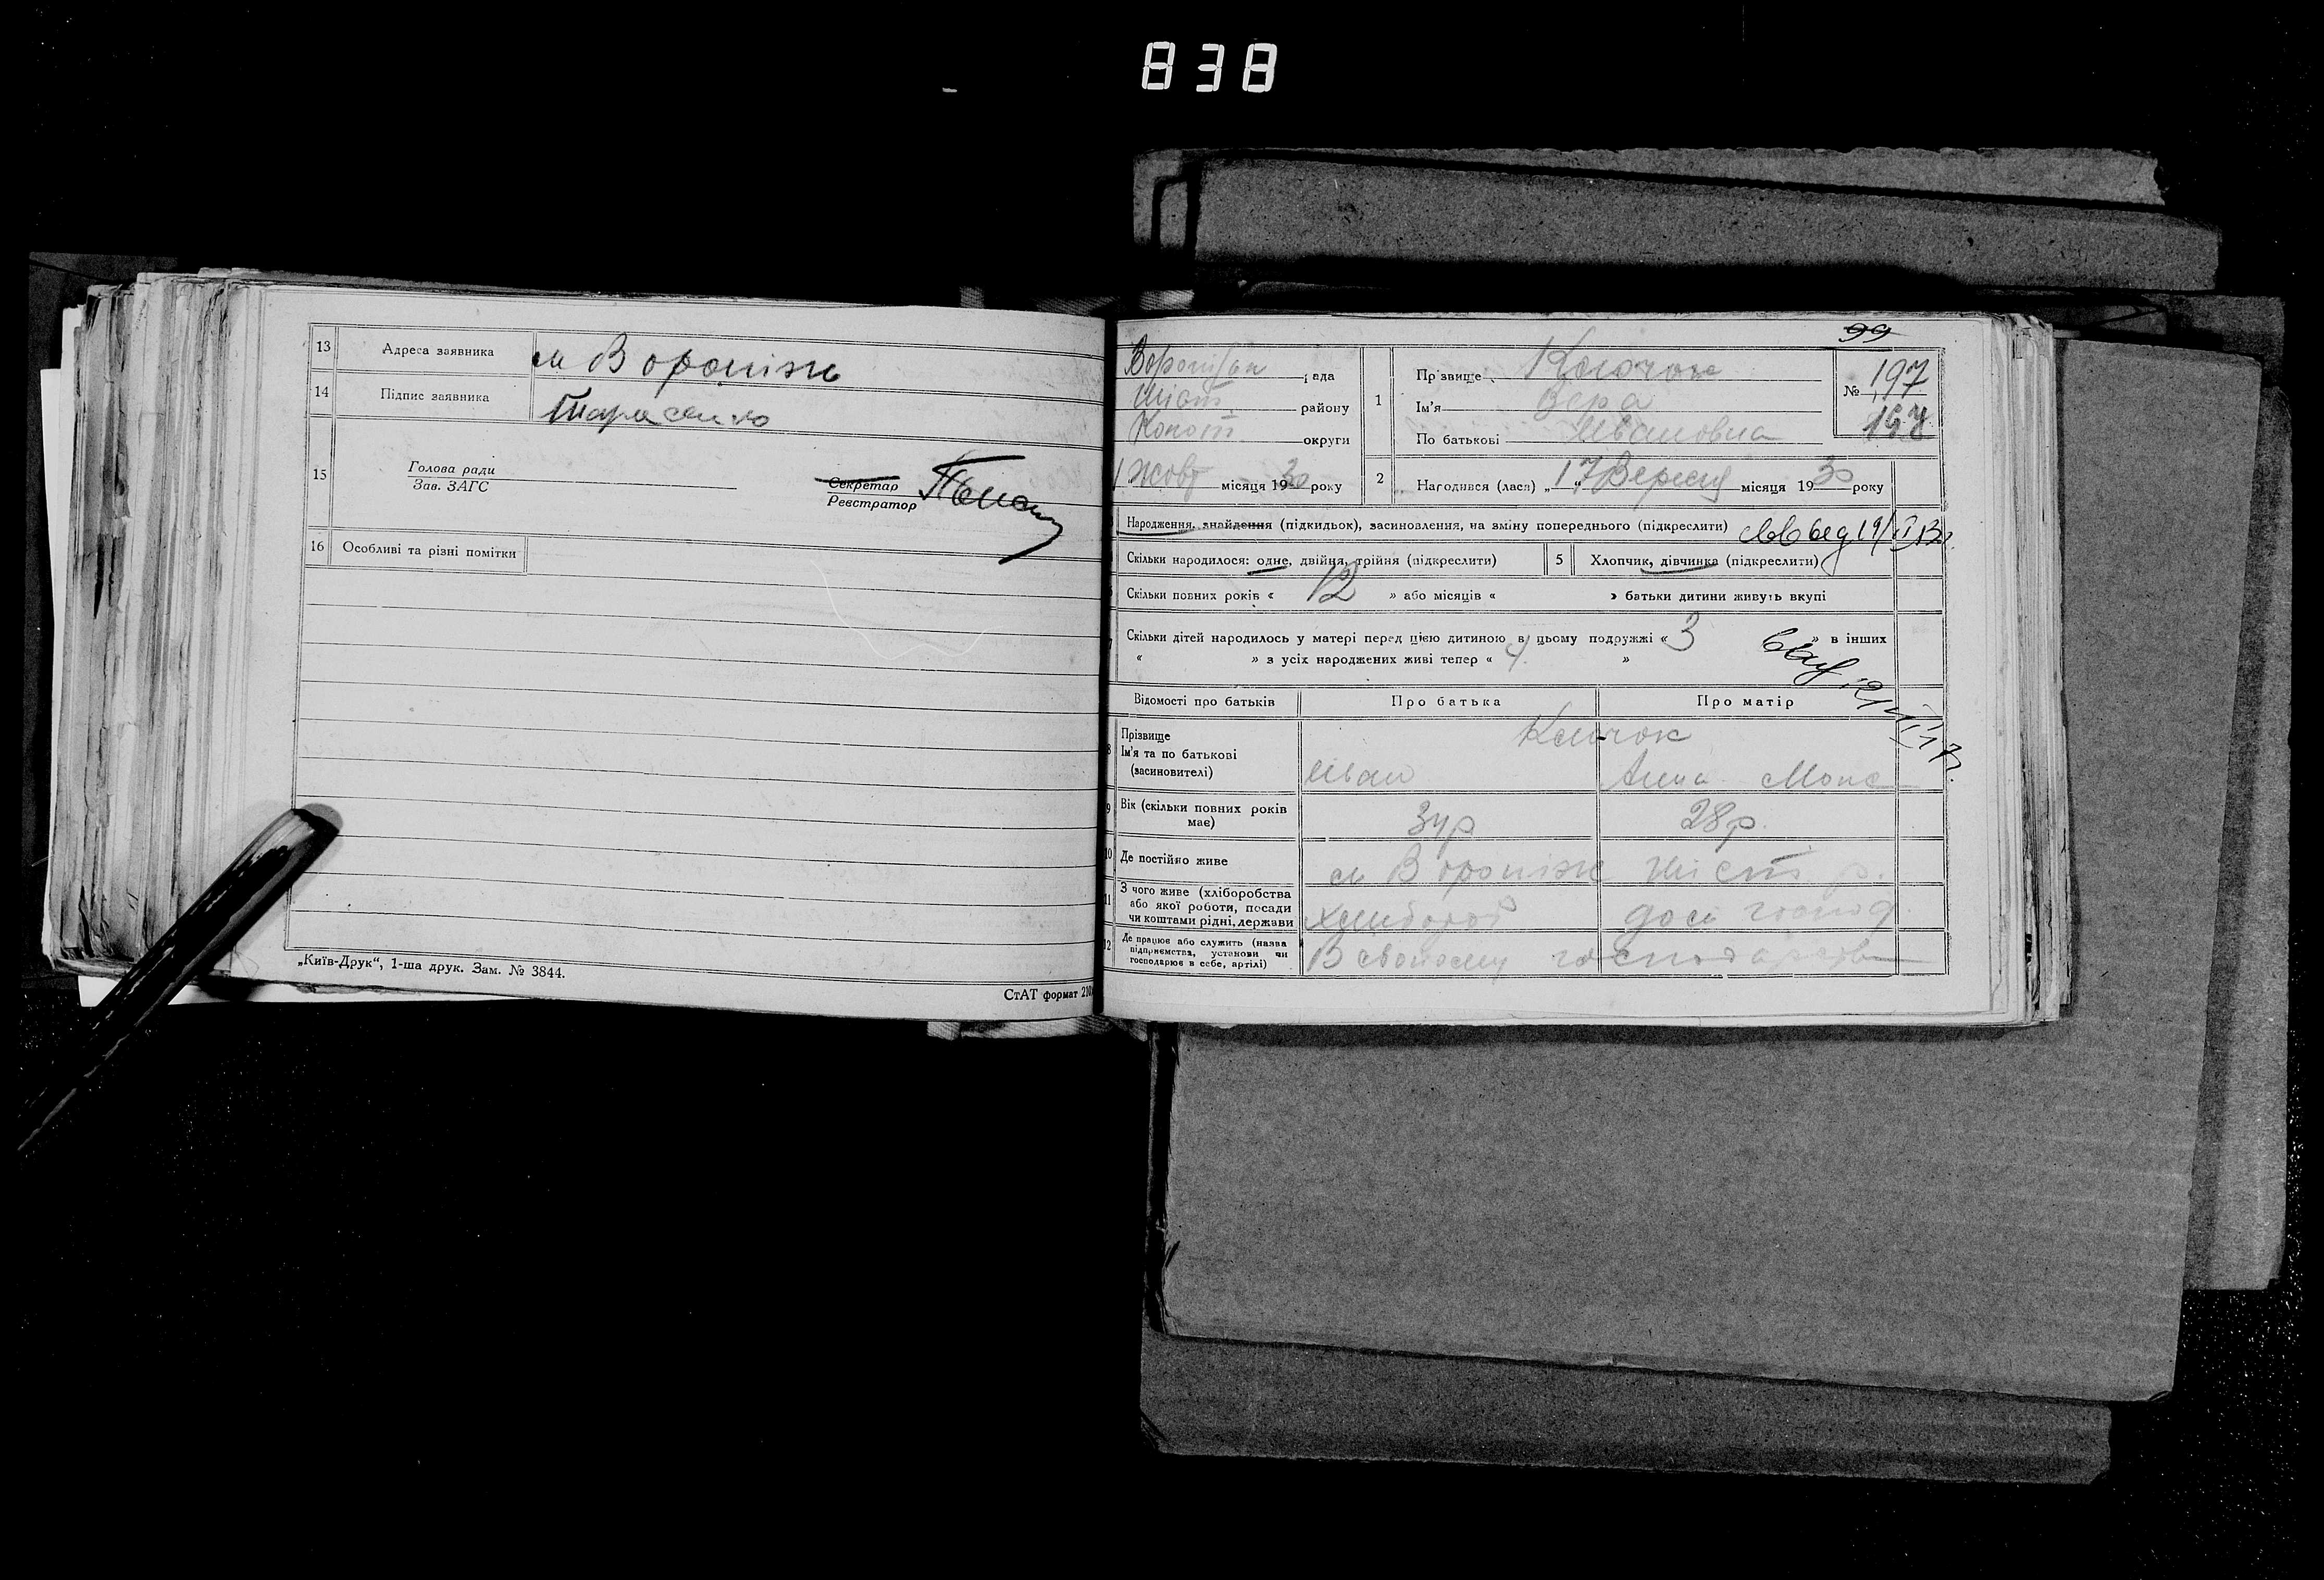 838
13 Адреса заявника м Вороніж
14 Підпис заявника Тарасенко
15 Голова ради
Зав. ЗАГС
Секретар
Реєстратор
16 Особливі та різні помітки
„Київ-Друк“, 1-ша друк. Зам. № 3844.
СтАТ формат 210
99
рада
району
Конот округи
1 Жовт місяця 1930 року
1 Прізвище Клочок
Ім'я Вера
По батькові Ивановна
№ 197
197
2 Народився (лася) „17“ Вересня місяця 1930 року
Народження, знайдення (підкидьок), засиновлення, на зміну попереднього (підкреслити)
Скільки народилося: одне, двійня, трійня (підкреслити)
5 Хлопчик, дівчинка (підкреслити)
Скільки повних років « 12 » або місяців « » батьки дитини живуть вкупі
Скільки дітей народилось у матері перед цією дитиною в цьому подружжі « 3 » в інших
« » з усіх народжених живі тепер « 4 »
Відомості про батьків Про батька Про матір
8 Прізвище Клочок
Ім'я та по батькові
(засиновителі) Иван Анна
9 Вік (скільки повних років
має) 34р 28р.
10 Де постійно живе м Вороніж р.
11 З чого живе (хліборобства
або якої роботи, посади
чи коштами рідні, держави хлибороб дом господ
12 Де працює або служить (назва
підприємства, установи чи
господарює в себе, артілі) В своєму